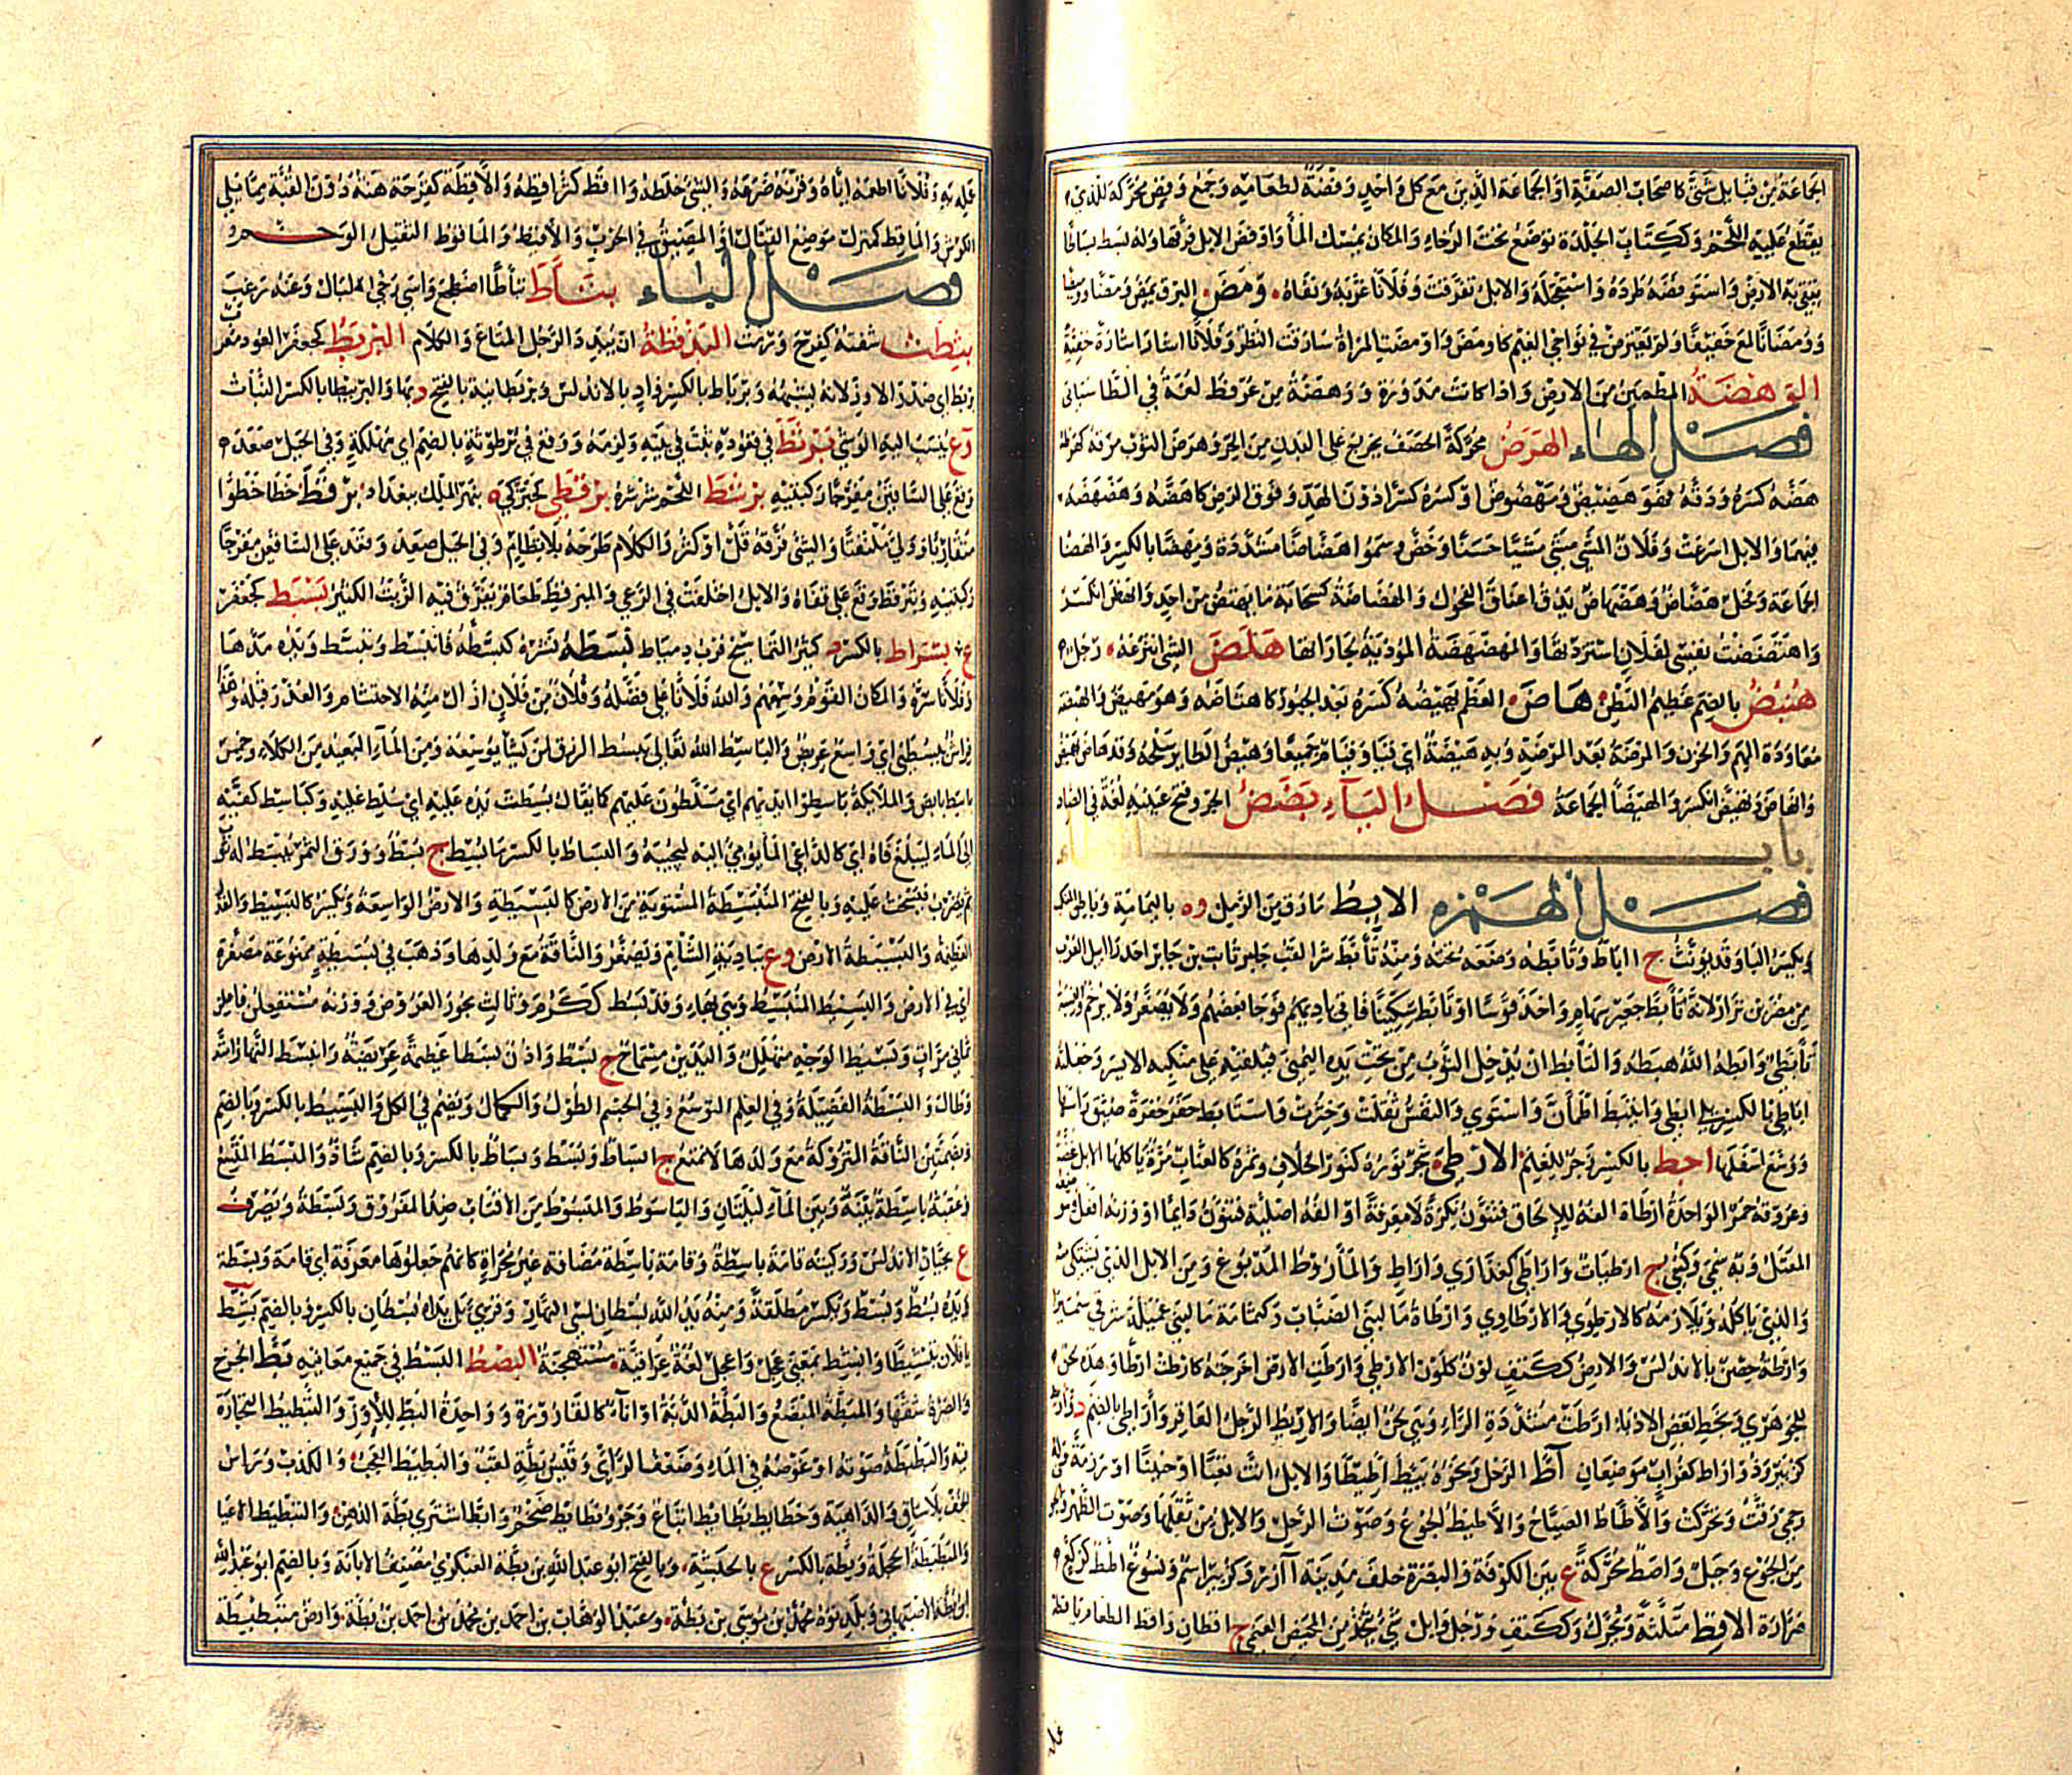 الجماعة من قبائل شتى كاصحاب الصفة او الجماعة الذين مع كل واحد وفضة لطعامه وجمع وفض محركة للذي
يقطع عليه اللحم وككتاب الجلدة توضع تحت الرحا والمكان يمسك الماء واوفض الابل فرقها وله بسط بساطا
يتقي به الارض واستوفضه طرده واستعجله والابل تفرقت وفلانا غربه ونفاه ومض البرق يمض ومضا
وومضانا لمع خفيفا ولم يعترض في نواحي الغيم كاومض واومضت المراة سارقت النظر وفلان اشار اشارة خفية
الوهضة المطمئن من الارض واذا كانت مدورة ووهضة من عرفط لغة في الطا
فصل الهاء الهرض محركة الحصف يخرج على البدن من الحر وهرض الثوب مزقه كهرطه
هضه كسره ودقه فهو هضيض ومهضوض او كسره كسرا دون الهد وفوق الرض كاهتضه وهضهضه
فيهما والابل اسرعت وفلان المشي مشى مشيا حسنا وسموا هضاضا مشددة ومهضا بالكسر والهضا
الجماعة وفحل هضاض وهضهاض يدق اعناق الفحول والهضاضة كسحابة ما يهتض من احد وانهض انكسر
واهتضضت نفسي لفلان استزدتها والمهضهضة المؤذية لجاراتها هلض الشي انتزعه رجل
هنبض بالضم عظيم البطن هاض العظم يهيضه كسره بعد الجبور كاهتاضه وهو مهيض والهيضة
معاودة الهم والحزن والمرضة بعد المرضة وبه هيضة اي قياء وقيام جميعا وهيض الطاير سلحه وقد هاض يهيض
وانهاض وتهيض انكسر والهيضا الجماعة فصل الياء يضض الجرو فتح عينيه لغة في الصاد
باب الطاء
فصل الهمزه الابط ما رق من الرمل وه باليمامة وباطن المنكب
وبكسر البا وقد يونث ج اباط وتابطه وضعه تحته ومنه تابط شرا لقب جابر ثابت بن جابر احد رابيل العرب
من مضر بن نزار لانه تابط جعبة سهام واخذ قوسا او تابط سكينا فاتى ناديهم فوجا بعضهم ولا يصغر ولا يرخم والنسبة
تابطي وابطه الله هبطه والتابط ان يدخل الثوب من تحت يده اليمنى فيلقيه على منكبه الايسر وجعلته
اباطي بالكسر يلي ابطي وايتبط اطمان واستوى والنفس ثقلت وخثرت واستابط حفر حفرة ضيق راسها
ووسع اسفلها احط بالكسر زجر للغنم الارطى شجر نوره كنور الخلاف وثمره كالعناب مرة ياكلها الابل غضة
وعروقه حمر الواحدة ارطاة الفه للالحاق فينون نكرة لا معرفة او الفه اصلية فينون دايما او وزنه افعل
المعتل وبه سمي وكني ج ارطيات واراطي كعذاري واراط والماروط المدبوغ ومن الابل الذي يشتكي منه
والذي ياكله ويلازمه كالارطوي والارطاوي وارطاة ما لبني الضباب وكثمامة ما لبني عميلة شرقي سميراء
وارطة حصن بالاندلس والاريط ككتف لون كلون الارطى وارطت الارض اخرجته كارطت ارطا وهذه لحن
للجوهري وبخط بعض الادباء ارطت مشددة الراء وهي لحن ايضا والاريط الرجل العاقر واراطى بالضم د
كزبير وذو اراط كغراب موضعان اط الرحل ونحوه يئط اطيطا والابل انت تعبا او حنينا او رزمة
رحمي رقت وتحركت والاطاط الصياح والاطيط الجوع وصوت الرحل والابل من ثقلها وصوت الظهر
من الجوع وجبل واطط محركة ع بين الكوفة والبصرة خلف مدينة آزر وكزبير اسم ونسوع اطط كركع
الاقط مثلثة ويحرك وككتف ورجل وابل شي يتخذ من المخيض الغنمي ج اقطان واقط الطعام ياقطه
عمله به وفلانا اطعمه اياه وقرنه صرعه والشي خلطه وااقط كثر اقطه والاقطة كفرحة هنة دون القبة مما يلي
الكرش والماقط كمنزل موضع القتال او المضيق في الحرب والاقيط والماقوط الثقيل الوخم
فصل الباء بتاط تباطا اضطجع وامسى رخي البال وعنه رغب
بثطت شفته كفرح ورمت البذقطة ان يبدد الرجل المتاع والكلام البربط كجعفر العود معرب
بربط اي صدر الاوز لانه يشبهه وبرباط بالكسر واد بالاندلس وبربطانية بالفتح د بها والبربيطيا بالكسر النبات
وع ينسب اليه الوشي برثط في قعوده ثبت في بيته ولزمه ووقع في برثوطة بالضم اي مهلكة وفي الجبل صعده
وقع على الساقين مفرجا ركبتيه برشط اللحم شرشره برقطى كحبركي ه بنهر الملك ببغداد برقط خطا خطوا
متقاربا وولى متلفتا والشي فرقه قل او كثر والكلام طرحه بلا نظام وفي الجبل صعد وقعد على الساقين مفرجا
ركبتيه وتبرقط وقع على قفاه والابل اختلفت في الرعي والمبرقط طعام يفرق فيه الزيت الكثير بسبط كجعفر
ع بسراط بالكسر د كثير التماسيح قرب دمياط بسطه نشره كبسطه فانبسط وتبسط ويده مدها
وفلانا سره والمكان القوم وسعهم والله فلانا علي فضله وفلان من فلان ازال منه الاحتشام والعذر قبله
فراش يبسطني اي واسع عريض والباسط الله تعالى يبسط الرزق لمن يشاء يوسعه ومن الماء البعيد من الكلاء وخمس
باسط بايص والملائكة باسطوا ايديهم اي مسلطون عليهم كما يقال بسطت يده عليه اي سلط عليه وكباسط كفيه
الى الماء ليبلغ فاه اي كالداعي الماء يومي اليه ليجيبه والبساط بالكسر ما بسط ج بسط وورق الثمر يبسط له
ثم يضرب فينحت عليه وبالفتح المنبسطة المستوية من الارض كالبسيطة والارض الواسعة ويكسر كالبسيط والقدر
العظيمة والبسيطة الارض وع ببادية الشام ويصغر والناقة مع ولدها وذهب في بسيطة ممنوعة مصغرة
اي في الارض والبسيط المنبسط وهي بهاء وقد بسط ككرم وثالث بحور العروض ووزنه مستفعلن فاعلن
ثماني مرات وبسيط الوجه متهلل واليدين مسماح ج بسط واذن بسطا عظيمة عريضة وانبسط النهار امتد
وطال والبسطة الفضيلة وفي العلم التوسع وفي الجسم الطول والكمال ويضم في الكل والبسيط بالكسر وبالضم
وبضمتين الناقة المتروكة مع ولدها لا تمنع ج ابساط وبسط وبساط بالكسر وبالضم شاذ والمبسط المتسع
وعقبة باسطة بينها وبين الماء ليلتان والباسوط والمبسوط من الاقتاب ضد المفروق وبسطة ويصرف
ع بجيان الاندلس وركية قامة باسطة وقامة باسطة مضافة غير مجراة كانهم جعلوها معرفة اي قامة وبسطة
ويده بسط وبسط ويكسر مطلقة ومنه يد الله بسطان لمسي النهار وقري بل يداه بسطان بالكسر وبالضم بسط
يا فلان تبسيطا وابسط بمعنى عجل واعجل لغة عراقية مستهجنة البصط البسط في جميع معانيه بط الجرح
والصرة شقها والمبطة المبضع والبطة الدبة او اناء كالقارورة وواحدة البط للاوز والتبطيط التجارة
فيه والبطبطة صوته او غوصه في الماء وضعف الراي وقيس بطة لقب والبطيط العجب والكذب وراس
الخف بلا ساق والداهية وحطايط بطايط اتباع وجرو بطايط ضخم وابط اشترى بطة الدهن والتبطيط الاعيا
والبطيطة الحجلة وبطة بالكسر ع بالحبشة وبالفتح ابو عبد الله بن بطة العكبري مصنف الابانة وبالضم ابو عبد الله
ابن بطة الاصبهاني وبلديه محمد بن موسى بن بطة وعبد الوهاب بن احمد بن محمد بن احمد بن بطة وارض متبطبطة